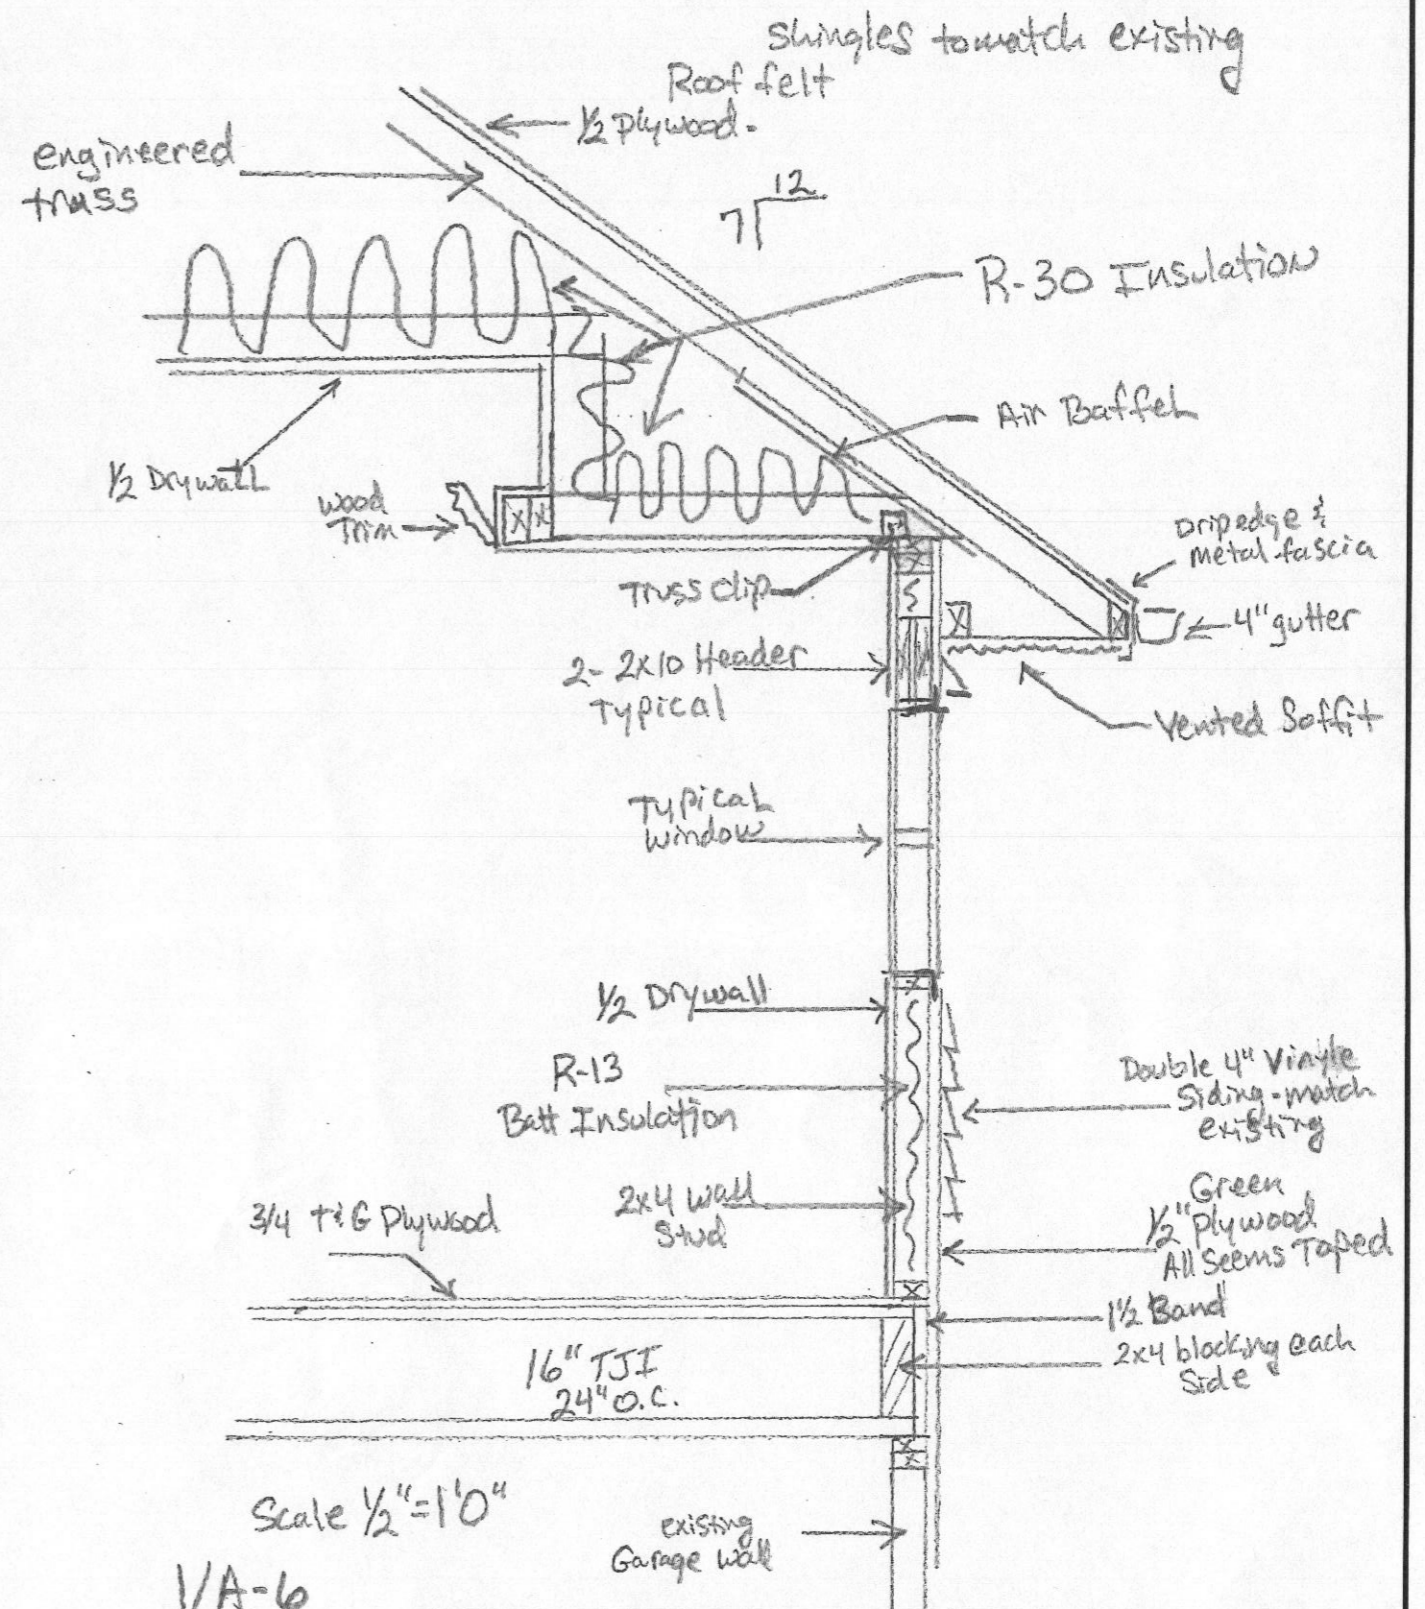 Shingles to match existing
Roof felt
1/2 Plywood.
engineered
truss
12
7
R-30 Insulation
Air Baffel
1/2 Drywall
wood
Trim
Dripedge &
metal fascia
Truss clip
4" gutter
2- 2x10 Header
Typical
Vented Soffit
Typical
window
1/2 Drywall
R-13
Batt Insulation
Double 4" Vinyle
Siding-match
existing
2x4 wall
Stud
3/4 T&G Plywood
Green
1/2" plywood
All Seems Taped
1 1/2 Band
2x4 blocking each
Side
16" TJI
24" O.C.
Scale 1/2"=1'0"
existing
Garage wall
1/A-6